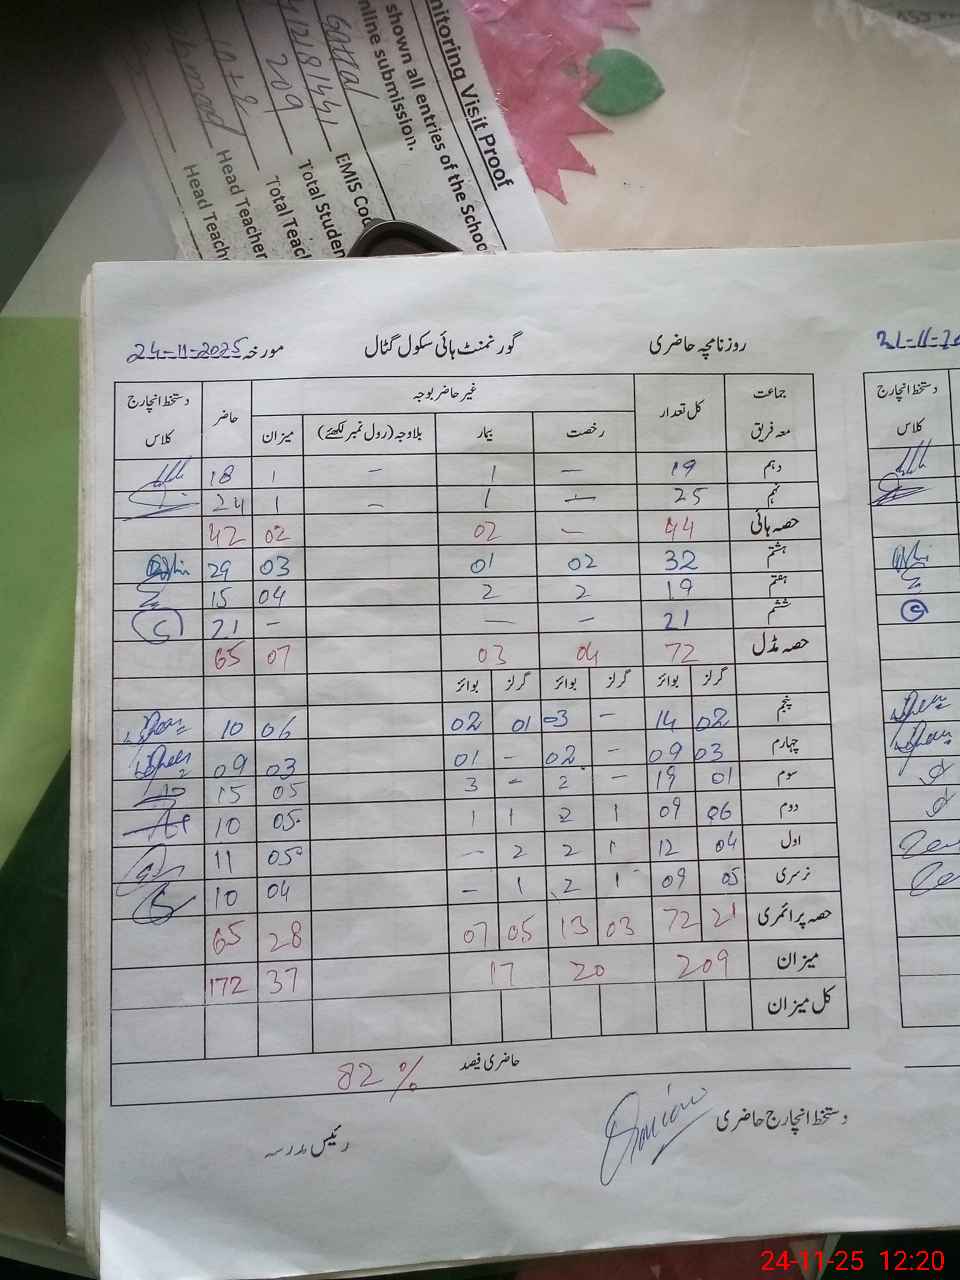 Monitoring Visit Proof
shown all entries of the School
online submission.
Gattal
EMIS Code
209
Total Studen
Total Teach
Head Teacher
Head Teache
روزنامچہ حاضری گورنمنٹ ہائی سکول گٹال مورخہ 24-11-2025
جماعت معہ فریق کل تعداد غیر حاضر بوجہ حاضر دستخط انچارج کلاس
رخصت بیمار بلاوجہ (رول نمبر لکھئے) میزان
دہم 19 – 1 – 1 18
نہم 25 – 1 – 1 24
حصہ ہائی 44 – 02 02 42
ہشتم 32 02 01 03 29
ہفتم 19 2 2 04 15
ششم 21 – – – 21
حصہ مڈل 72 04 03 07 65
گرلز بوائز گرلز بوائز گرلز بوائز
پنجم 02 14 – 03 01 02 06 10
چہارم 03 09 – 02 – 01 03 09
سوم 01 19 – 2 – 3 05 15
دوم 06 09 1 2 1 1 05 10
اول 04 12 1 2 2 – 05 11
نرسری 05 09 1 2 1 – 04 10
حصہ پرائمری 21 72 03 13 05 07 28 65
میزان 209 20 17 37 172
کل میزان
حاضری فیصد 82 %
دستخط انچارج حاضری
رئیس مدرسہ
دستخط انچارج
کلاس
24-11-25 12:20